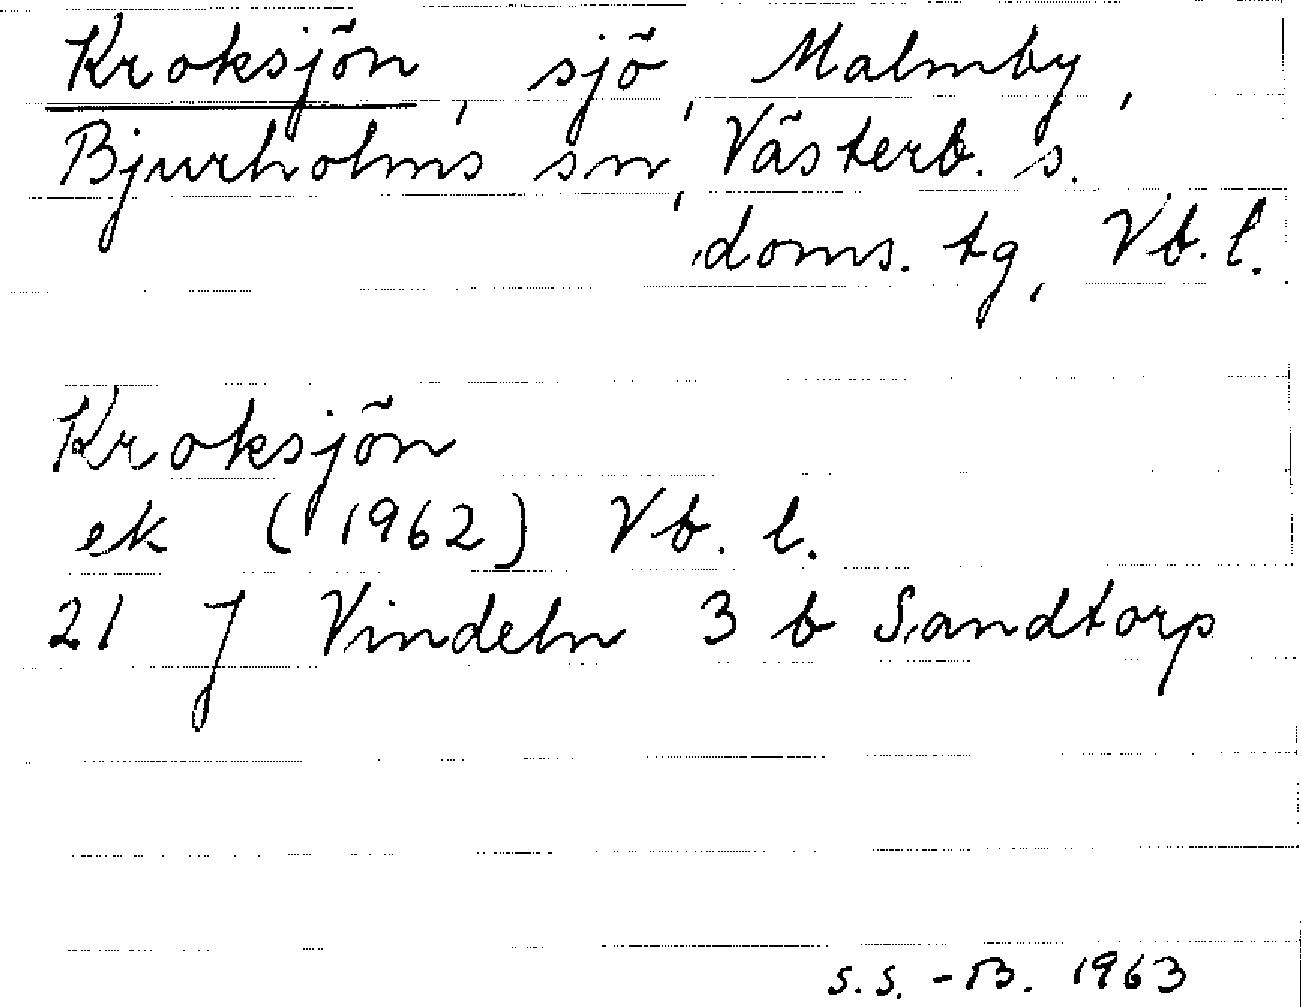 Kroksjön, sjö, Malmby,
Bjurholms sn, Västerb. s.
doms. tg, Vb. l.
Kroksjön
ek (1962) Vb. l.
21 J Vindeln 3 b Sandtorp
s.s. -B. 1963